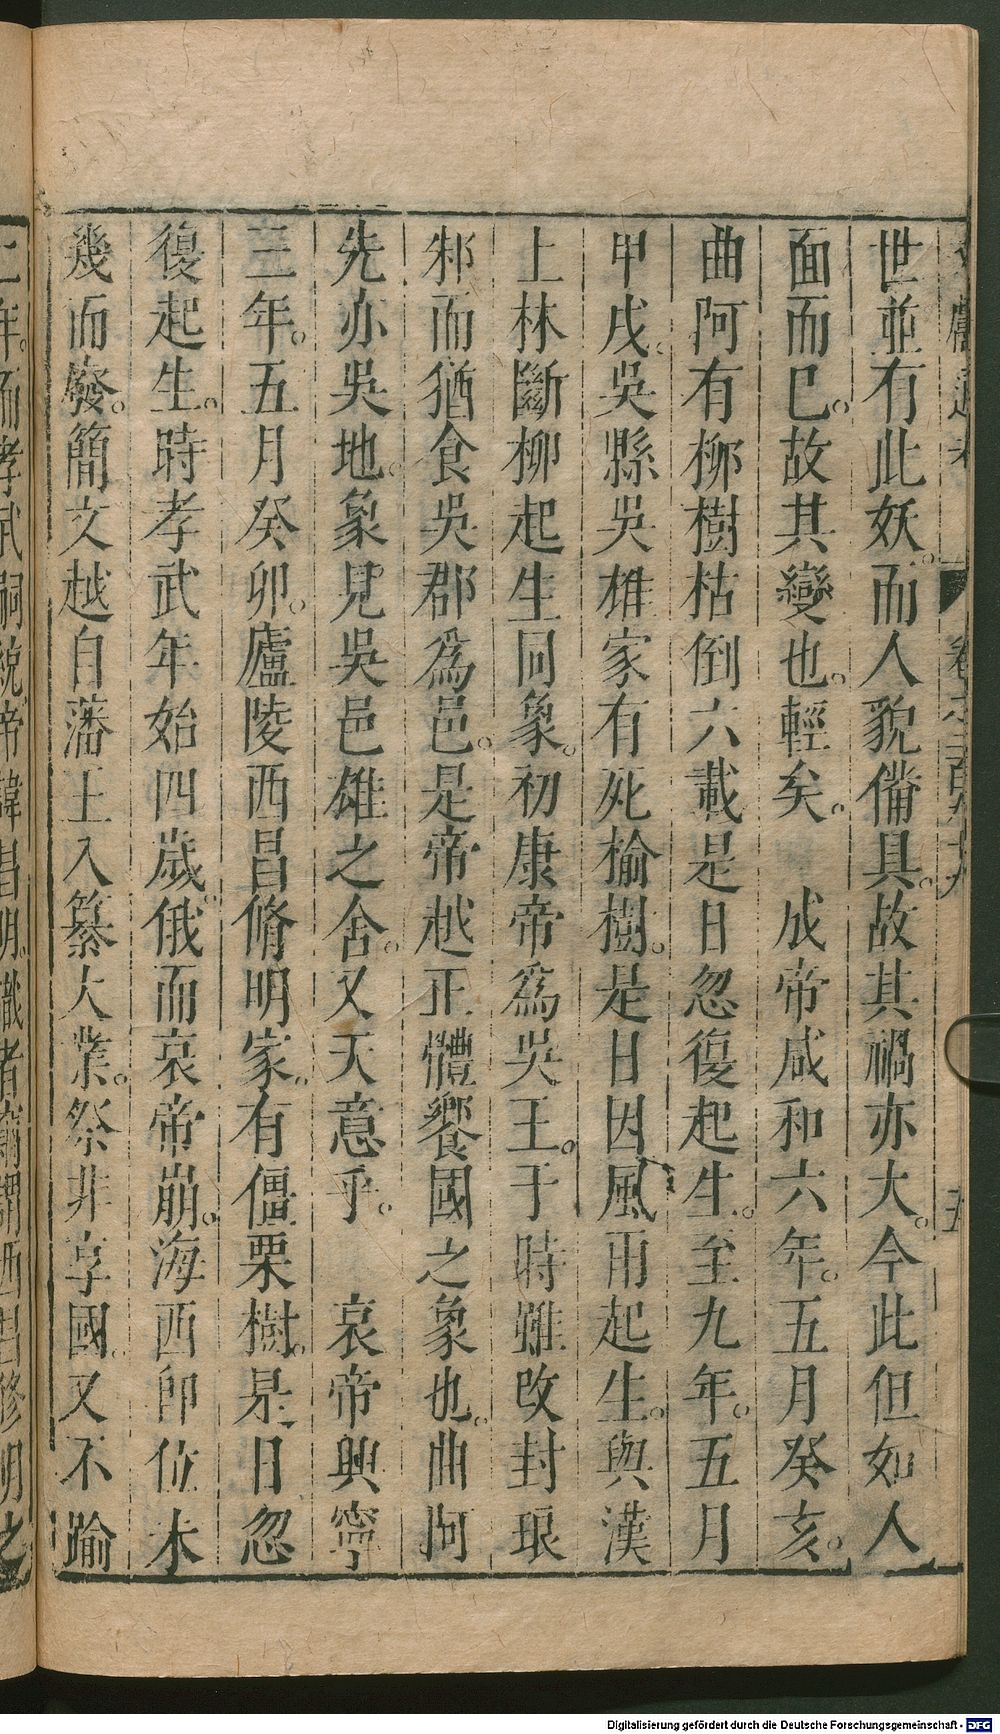 世並有此妖。而人貌備具。故其禍亦大。今此但如人
面而巳。故其變也。輕矣。　成帝咸和六年。五月癸亥。
曲阿有柳樹枯倒六載是日忽復起生。至九年。五月
甲戌。吳縣吳雄家有死榆樹。是日因風雨起生。與漢
上林斷柳起生同象。初康帝為吳王。于時雖改封琅
邪而猶食吳郡為邑。是帝越正體饗國之象也。曲阿
先亦吳地。象見吳邑雄之舍。又天意乎。　哀帝興寧
三年。五月癸卯。廬陵西昌脩明家。有僵栗樹。是日忽
復起生。時孝武年始四歲。俄而哀帝崩。海西即位未
幾而發。簡文越自藩王入纂大業。祭非享國。又不踰
二年。而孝武嗣統。帝諱昌明。識者竊謂西昌修明之
卷
五
Digitalisierung gefördert durch die Deutsche Forschungsgemeinschaft - DFG